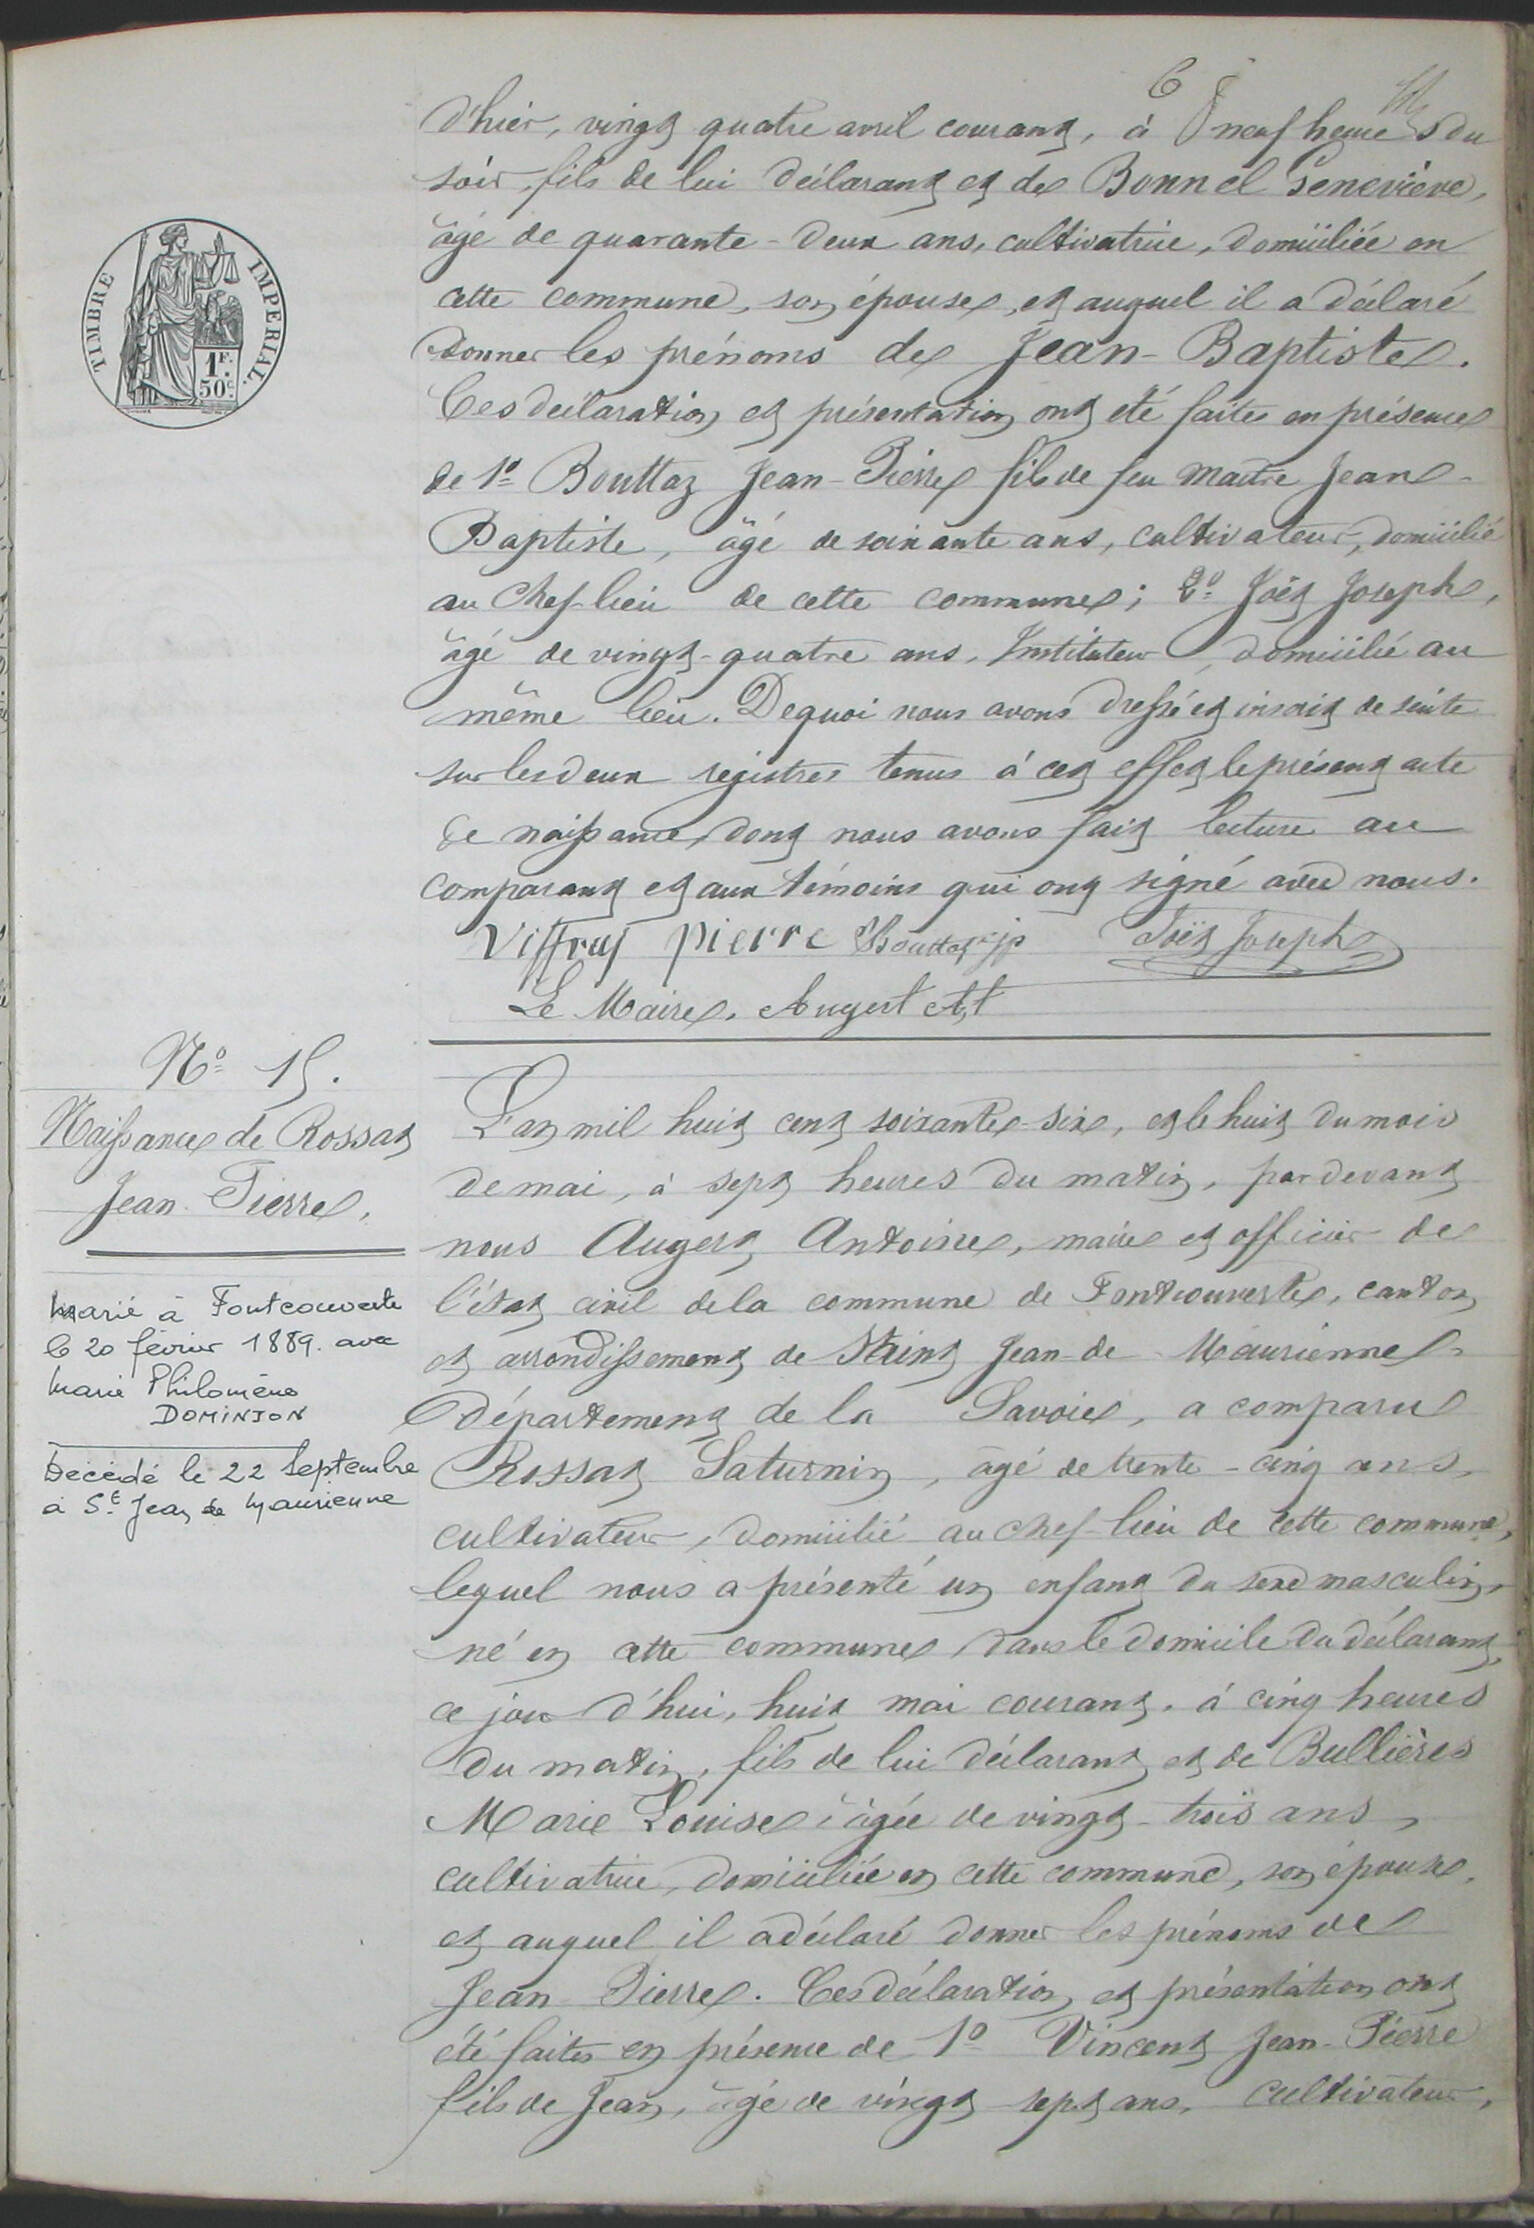 6
d'hier, vingt quatre avril courant, à neuf heures du
soir, fils de lui déclarant et de Bonnel Geneviève,
âgé de quarante-deux ans, cultivatrice, domiciliée en
cette commune, son épouse, et auquel il a déclaré
donner les prénoms de Jean-Baptiste.
Ces déclaration et présentation ont été faites en présence
de 1º Bouttaz Jean-Pierre fils de feu maître Jean-
Baptiste, âgé de soixante ans, cultivateur, domicilié
au Chef-lieu de cette commune; 2º Joët Joseph,
âgé de vingt-quatre ans, Instituteur, domicilié au
même lieu. De quoi nous avons dressé et inscrit de suite
sur les deux registres tenus à cet effet le présent acte
de naissance, dont nous avons fait lecture au
comparant et aux témoins qui ont signé avec nous.
Viffray pierre Bouttaz jp Joët Joseph
Le Maire, Augert At
TIMBRE IMPERIAL.
1F.
50c
Nº 15.
Naissance de Rossat
Jean Pierre,
Marié à Fontcouverte
le 20 février 1889. avec
Marie Philomène
DOMINJON
Décédé le 22 Septembre
à St Jean de Maurienne
L'an mil huit cent soixante-six, et le huit du mois
de mai, à sept heures du matin, par devant
nous Augert Antoine, maire et officier de
l'état civil de la commune de Fontcouverte, canton
et arrondissement de Saint Jean-de-Maurienne,
département de la Savoie, a comparu
Rossat Saturnin, âgé de trente-cinq ans,
cultivateur, domicilié au chef-lieu de cette commune,
lequel nous a présenté un enfant du sexe masculin,
né en cette commune, dans le domicile du déclarant,
ce jour d'hui, huit mai courant, à cinq heures
du matin, fils de lui déclarant et de Bullières
Marie Louise, âgée de vingt-trois ans,
cultivatrice, domiciliée en cette commune, son épouse,
et auquel il a déclaré donner les prénoms de
Jean Pierre. Ces déclaration et présentation ont
été faites en présence de 1º Vincent Jean-Pierre
fils de Jean, âgé de vingt sept ans, cultivateur,